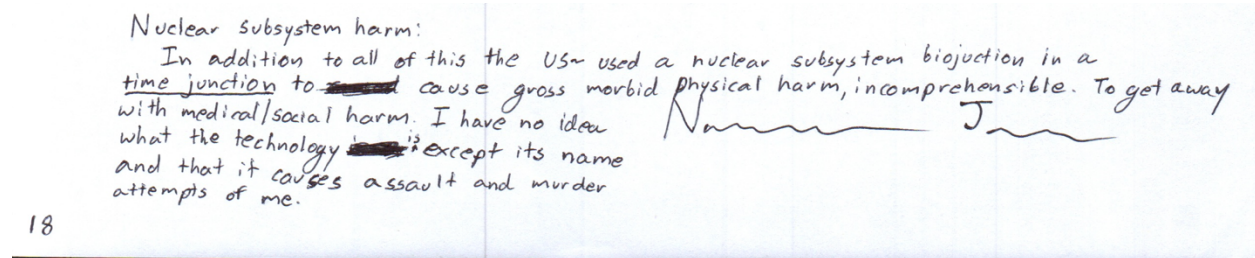 Nuclear subsystem harm:
In addition to all of this the US~ used a nuclear subsystem biojuction in a
time junction to cause gross morbid physical harm, incomprehensible. To get away
with medical/social harm. I have no idea
what the technology is except its name
and that it causes assault and murder
attempts of me.
18